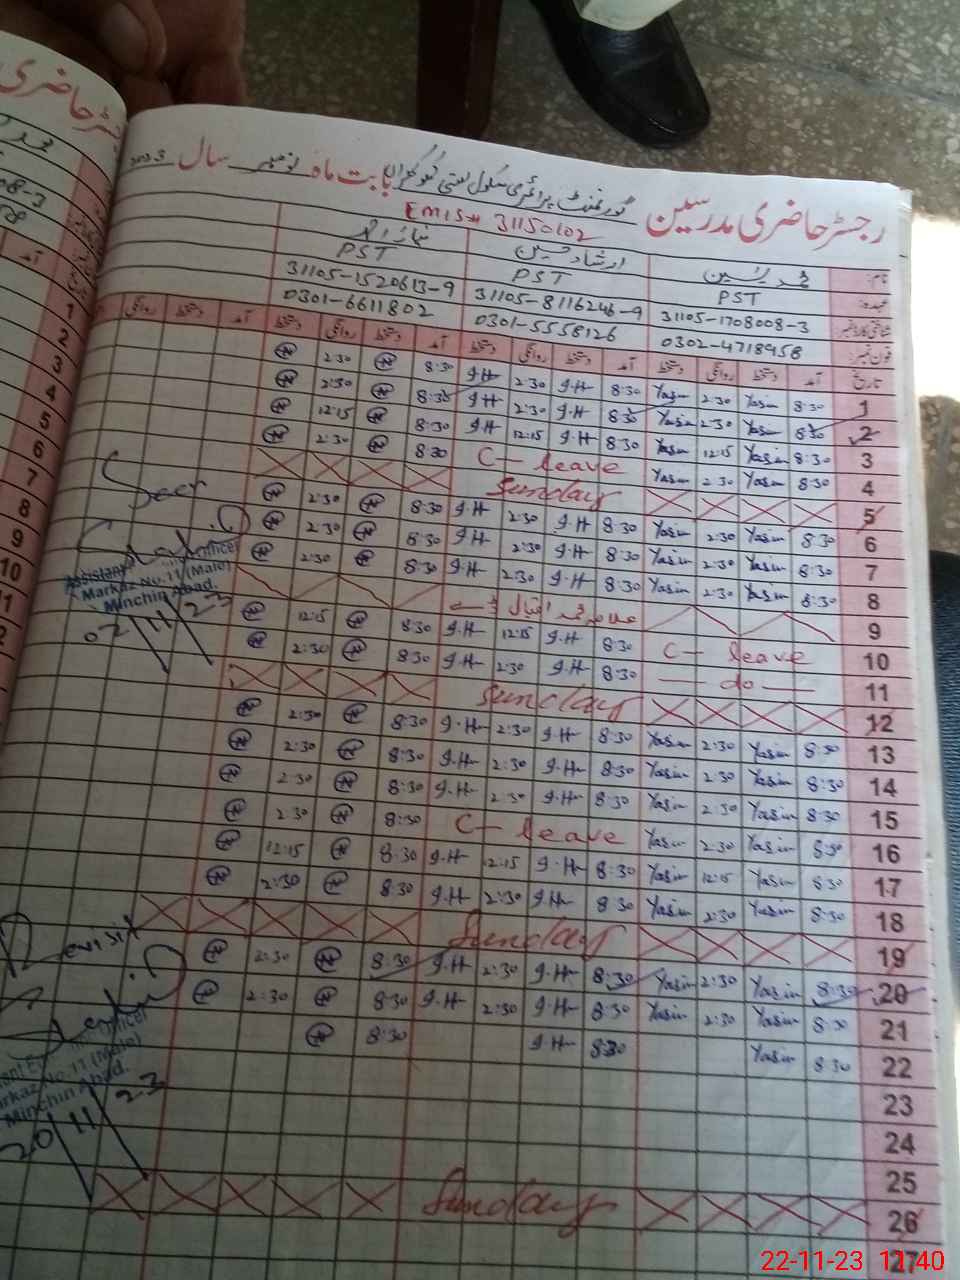 رجسٹر حاضری مدرسین گورنمنٹ پرائمری سکول بستی بابت ماہ نومبر سال 2023
EMIS# 31150102
نام: محمد یٰسین ارشاد حسین نیاز احمد
عہدہ: PST PST PST
شناختی کارڈ نمبر: 31105-1708008-3 31105-8116246-9 31105-1520613-9
فون نمبر: 0302-4718958 0301-5558126 0301-6611802
تاریخ آمد دستخط روانگی دستخط آمد دستخط روانگی دستخط آمد دستخط روانگی دستخط آمد دستخط روانگی
1 8:30 Yasin 2:30 Yasin 8:30 I.H 2:30 I.H 8:30 N 2:30 N
2 8:30 Yasin 2:30 Yasin 8:30 I.H 2:30 I.H 8:30 N 2:30 N
3 8:30 Yasin 12:15 Yasin 8:30 I.H 12:15 I.H 8:30 N 12:15 N
4 8:30 Yasin 2:30 Yasin C-leave 8:30 N 2:30 N
5 Sunday
6 8:30 Yasin 2:30 Yasin 8:30 I.H 2:30 I.H 8:30 N 2:30 N
7 8:30 Yasin 2:30 Yasin 8:30 I.H 2:30 I.H 8:30 N 2:30 N
8 8:30 Yasin 2:30 Yasin 8:30 I.H 2:30 I.H 8:30 N 2:30 N
9 علامہ محمد اقبال ڈے
10 C-leave 8:30 I.H 12:15 I.H 8:30 N 12:15 N
11 do 8:30 I.H 2:30 I.H 8:30 N 2:30 N
12 Sunday
13 8:30 Yasin 2:30 Yasin 8:30 I.H 2:30 I.H 8:30 N 2:30 N
14 8:30 Yasin 2:30 Yasin 8:30 I.H 2:30 I.H 8:30 N 2:30 N
15 8:30 Yasin 2:30 Yasin 8:30 I.H 2:30 I.H 8:30 N 2:30 N
16 8:30 Yasin 2:30 Yasin C-leave 8:30 N 2:30 N
17 8:30 Yasin 12:15 Yasin 8:30 I.H 12:15 I.H 8:30 N 12:15 N
18 8:30 Yasin 2:30 Yasin 8:30 I.H 2:30 I.H 8:30 N 2:30 N
19 Sunday
20 8:30 Yasin 2:30 Yasin 8:30 I.H 2:30 I.H 8:30 N 2:30 N
21 8:30 Yasin 2:30 Yasin 8:30 I.H 2:30 I.H 8:30 N 2:30 N
22 8:30 Yasin 8:30 I.H 8:30 N
23
24
25
26 Sunday
27
Seen
Assistant Officer
Markaz No.11 (Male)
Minchin Abad.
02/11/23
Revisit
Officer
Markaz No.11 (Male)
Minchin Abad.
20/11/23
رجسٹر حاضری
08-3
58
آمد
1
2
3
4
5
6
7
8
9
10
11
22-11-23 11:40